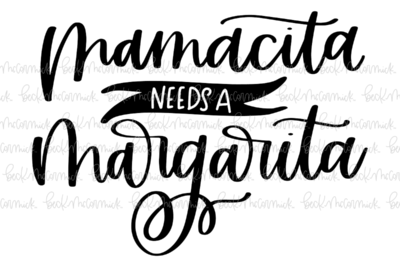 Mamacita
NEEDS A
Margarita